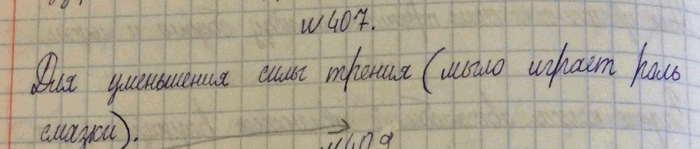 № 407.
Для уменьшения силы трения (мыло играет роль
смазки).
№ 409